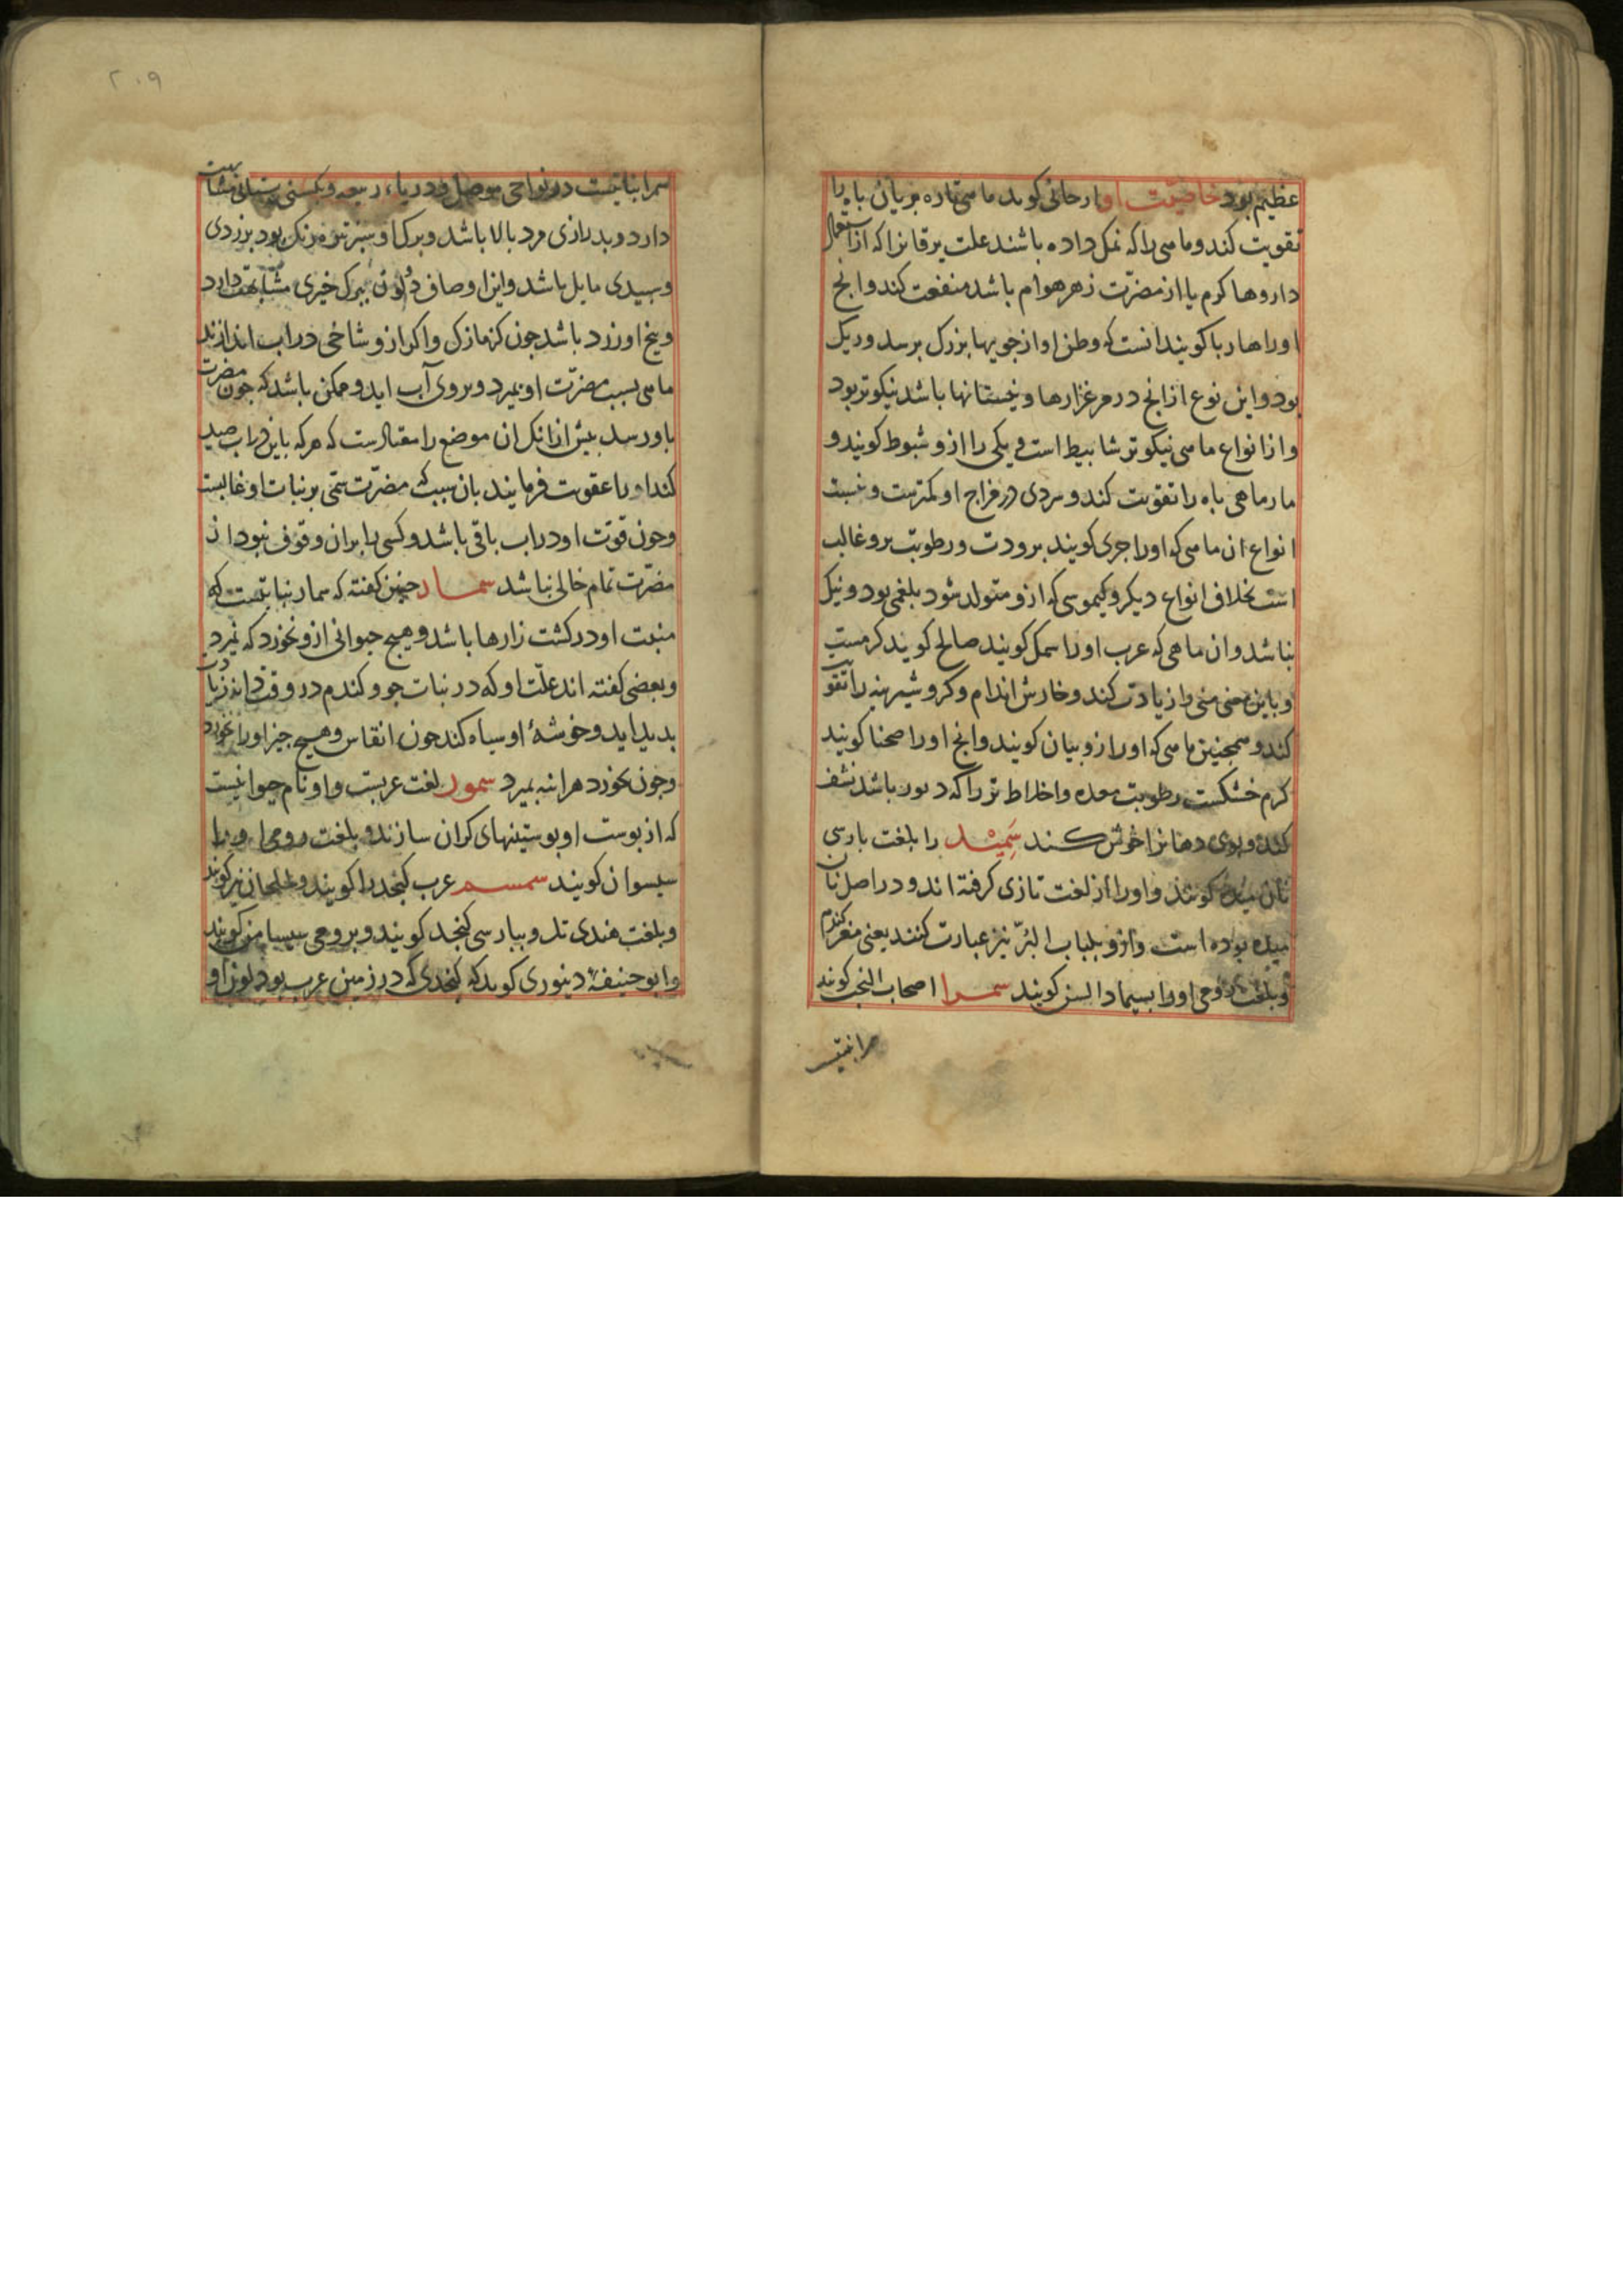 عظیم بود خاصیت او ارجانی کوید ماهی تازه بریان باه را
تقویت کند و ماهی را که نمک داده باشند علت یرقانرا که از استعمال
داروها کرم یا از مضرّت زهر هوام باشد منفعت کند وانج
اورا هاربا کویند انست که وطن او از جویها بزرک برسد و ریک
بود واین نوع از انج در مرغزارها و نیستانها باشد نیکوتر بود
و از انواع ماهی نیکوتر شابیط است و یکی را ازو شبوط کویند و
مارماهی باه را تقویت کند و سردی در مزاج او کمترست و نسبت
انواع ان ماهی که اورا جری کویند برودت و رطوبت برو غالب
است بخلاف انواع دیکر و کیموسی که ازو متولد شود بلغمی بود و نیک
نباشد وان ماهی که عرب اورا سمک کویند صالح کوید کرمست
و باین معنی منی را زیادت کند و خارش اندام و کر و شیرینه را تقویت
کند و همچنین ماهی که اورا زوبیان کویند وانج اورا صحنا کویند
کرم خشکست رطوبت معده و اخلاط تر را که درو باشد نشف
کند و بوی دهانرا خوش کند سَمِیْد را بلغت پارسی
نان میده کویند و اورا از لغت تازی کرفته اند و در اصل نان
میده بوده است وازو بلباب البُرّ نیز عبارت کنند یعنی مغز کندم
و بلغت رومی اورا بسیمادالسن کویند سمرا اصحاب النخب کویند
سمرا نبتیست
۲۰۹
سمرا نباتیست در نواحی موصل و دریاء ربیعه و بکسنی بستانی مشابهت
دارد و بدرازی مرد بالا باشد و برک او سبز تیره رنک بود بزردی
و سپیدی مایل باشد واین اوصاف در لون ببرک خیری مشابهت دارد
و بیخ او زرد باشد چون کزمازک واکر ازو شاخی در اب اندازند
ماهی بسبب مضرّت او بمیرد و بروی آب اید و ممکن باشد که چون مضرت
باو رسد بیش از انک ان موضع را معتادست که هر که باین در اب صید
کند اورا عقوبت فرمایند بان سبب که مضرت سمّی بر نبات او غالبست
وچون قوّت او در اب باقی باشد و کسی را بران وقوف نبود از
مضرّت تمام خالی نباشد سمار چنین کفته که سمار نباتیست که
منبت او در کشت زارها باشد و هیچ حیوانی ازو نخورد که نمیرد
و بعضی کفته اند علّت او که در نبات جو و کندم در وقت دانه دران
بدید اید و خوشهٔ او سیاه کند چون انقاس و هیچ چیز اورا نخورد
وچون بخورد هراینه بمیرد سمور لغت عربست و او نام حیوانیست
که از پوست او پوستینهای کران سازند و بلغت رومی او را
سیسوان کویند سمسم عرب کنجد را کویند و جلجلان نیز کویند
و بلغت هندی تل و بپارسی کنجد کویند و برومی سیسامن کویند
وابوحنیفهٔ دینوری کوید که کنجدی که در زمین عرب بود لون او